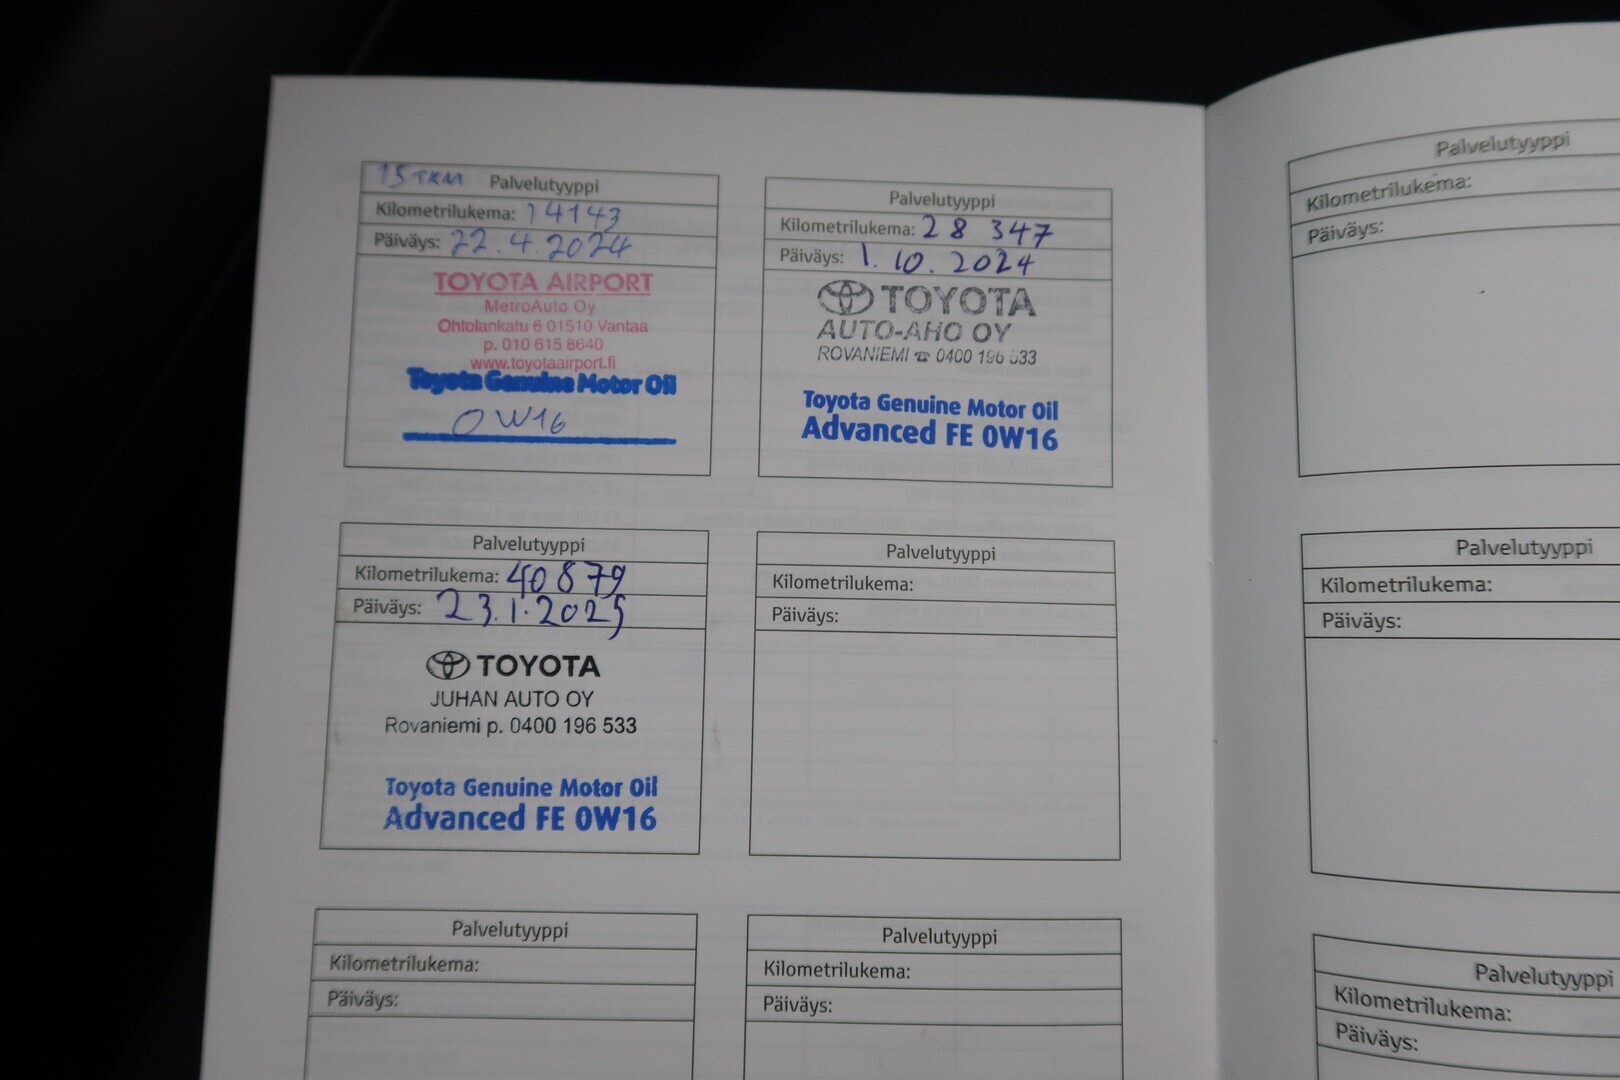 15 TKM Palvelutyyppi
Kilometrilukema: 14143
Päiväys: 22.4.2024
TOYOTA AIRPORT
MetroAuto Oy
Ohtolankatu 6 01510 Vantaa
p. 010 615 8640
www.toyotaairport.fi
Toyota Genuine Motor Oil
0W16
Palvelutyyppi
Kilometrilukema: 28 347
Päiväys: 1.10.2024
TOYOTA
AUTO-AHO OY
ROVANIEMI ☎ 0400 196 533
Toyota Genuine Motor Oil
Advanced FE 0W16
Palvelutyyppi
Kilometrilukema: 40879
Päiväys: 23.1.2025
TOYOTA
JUHAN AUTO OY
Rovaniemi p. 0400 196 533
Toyota Genuine Motor Oil
Advanced FE 0W16
Palvelutyyppi
Kilometrilukema:
Päiväys:
Palvelutyyppi
Kilometrilukema:
Päiväys:
Palvelutyyppi
Kilometrilukema:
Päiväys:
Palvelutyyppi
Kilometrilukema:
Päiväys:
Palvelutyyppi
Kilometrilukema:
Päiväys:
Palvelutyyppi
Kilometrilukema:
Päiväys: